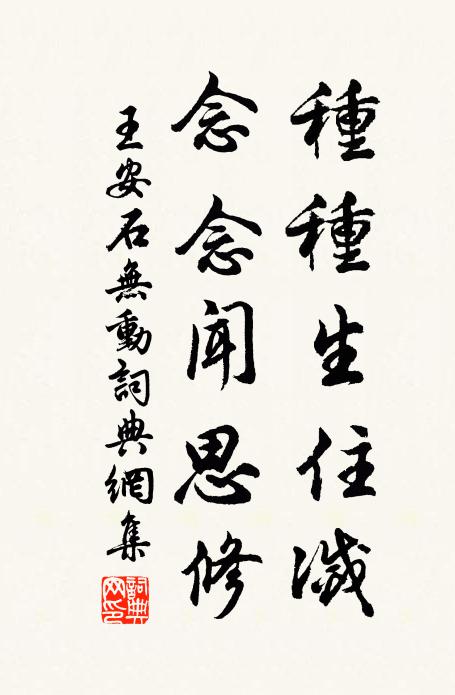 種種生住滅
念念聞思修
王安石無動詞典網集
詞典網印